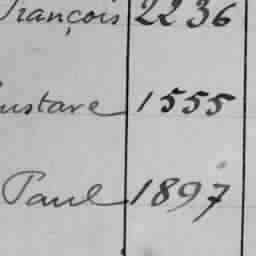 François 2236
ustave 1555
Paul 1897